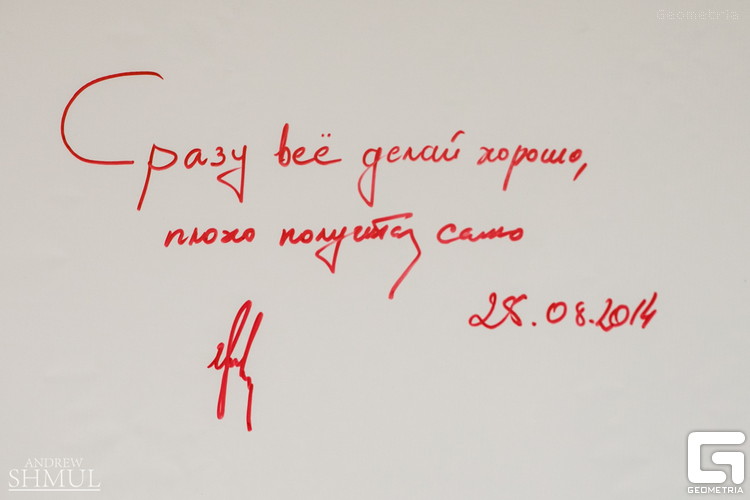 Geometria
Сразу всё делай хорошо,
плохо получится само
28.08.2014
ANDREW
SHMUL
GEOMETRIA